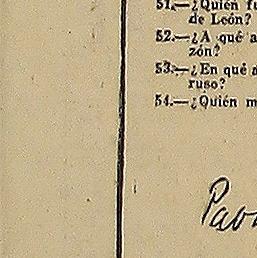 51.—¿Quién
de León?
52.—¿A qué
zón?
53.—¿En qué
ruso?
54.—¿Quién